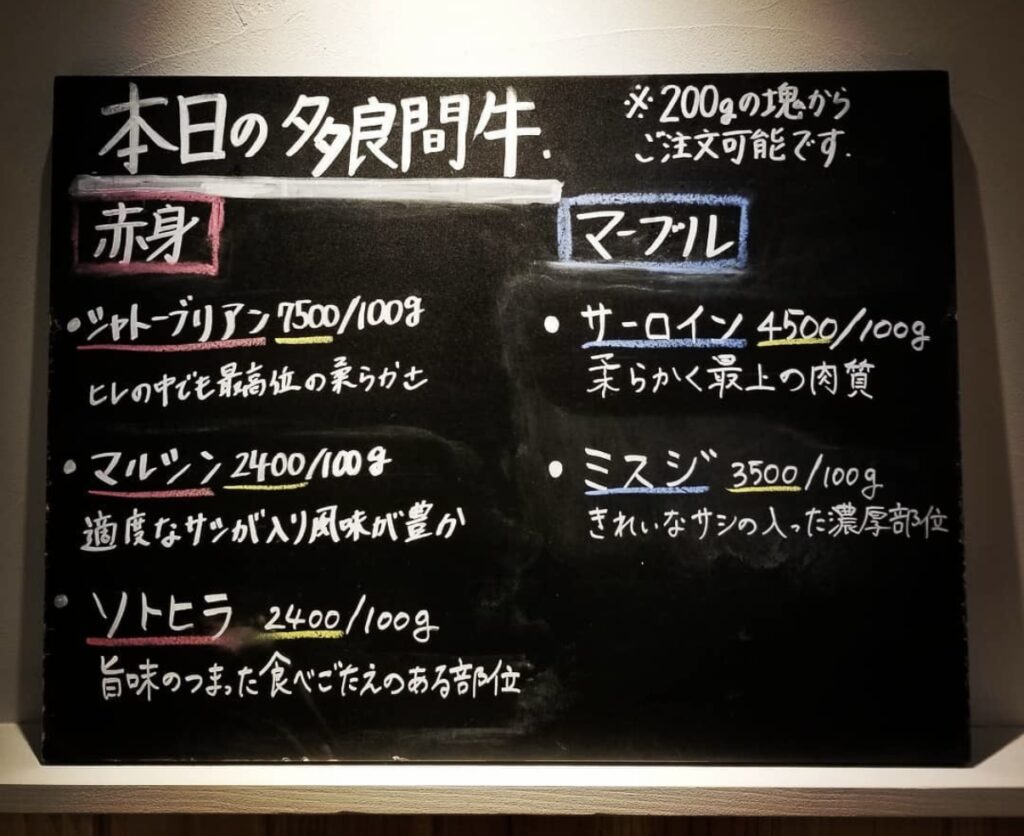 本日の多良間牛.
※200gの塊から
ご注文可能です.
赤身
・シャトーブリアン 7500/100g
ヒレの中でも最高位の柔らかさ
・マルシン 2400/100g
適度なサシが入り風味が豊か
・ソトヒラ 2400/100g
旨味のつまった食べごたえのある部位
マーブル
・サーロイン 4500/100g
柔らかく最上の肉質
・ミスジ 3500/100g
きれいなサシの入った濃厚部位